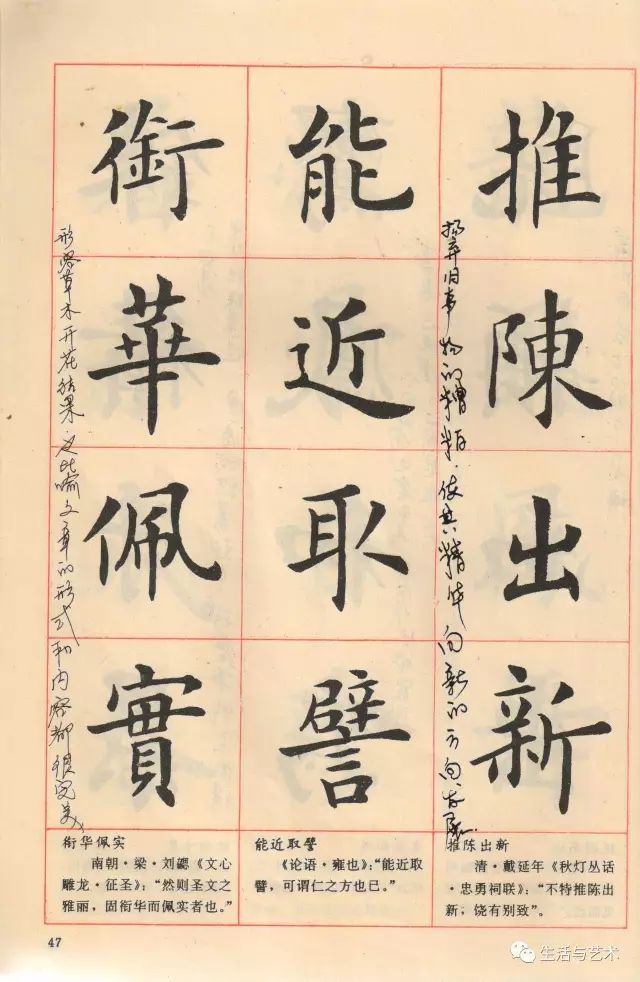 推陳出新
扬弃旧事物的糟粕.使其精华向新的方向发展.
能近取譬
銜華佩實
形容草木开花结果,又比喻文章的形式和内容都很完美
推陈出新
清·戴延年《秋灯丛话
·忠勇祠联》:“不特推陈出
新,饶有别致”。
能近取譬
《论语·雍也》:“能近取
譬,可谓仁之方也已。”
衔华佩实
南朝·梁·刘勰《文心
雕龙·征圣》:“然则圣文之
雅丽,固衔华而佩实者也。”
47
生活与艺术